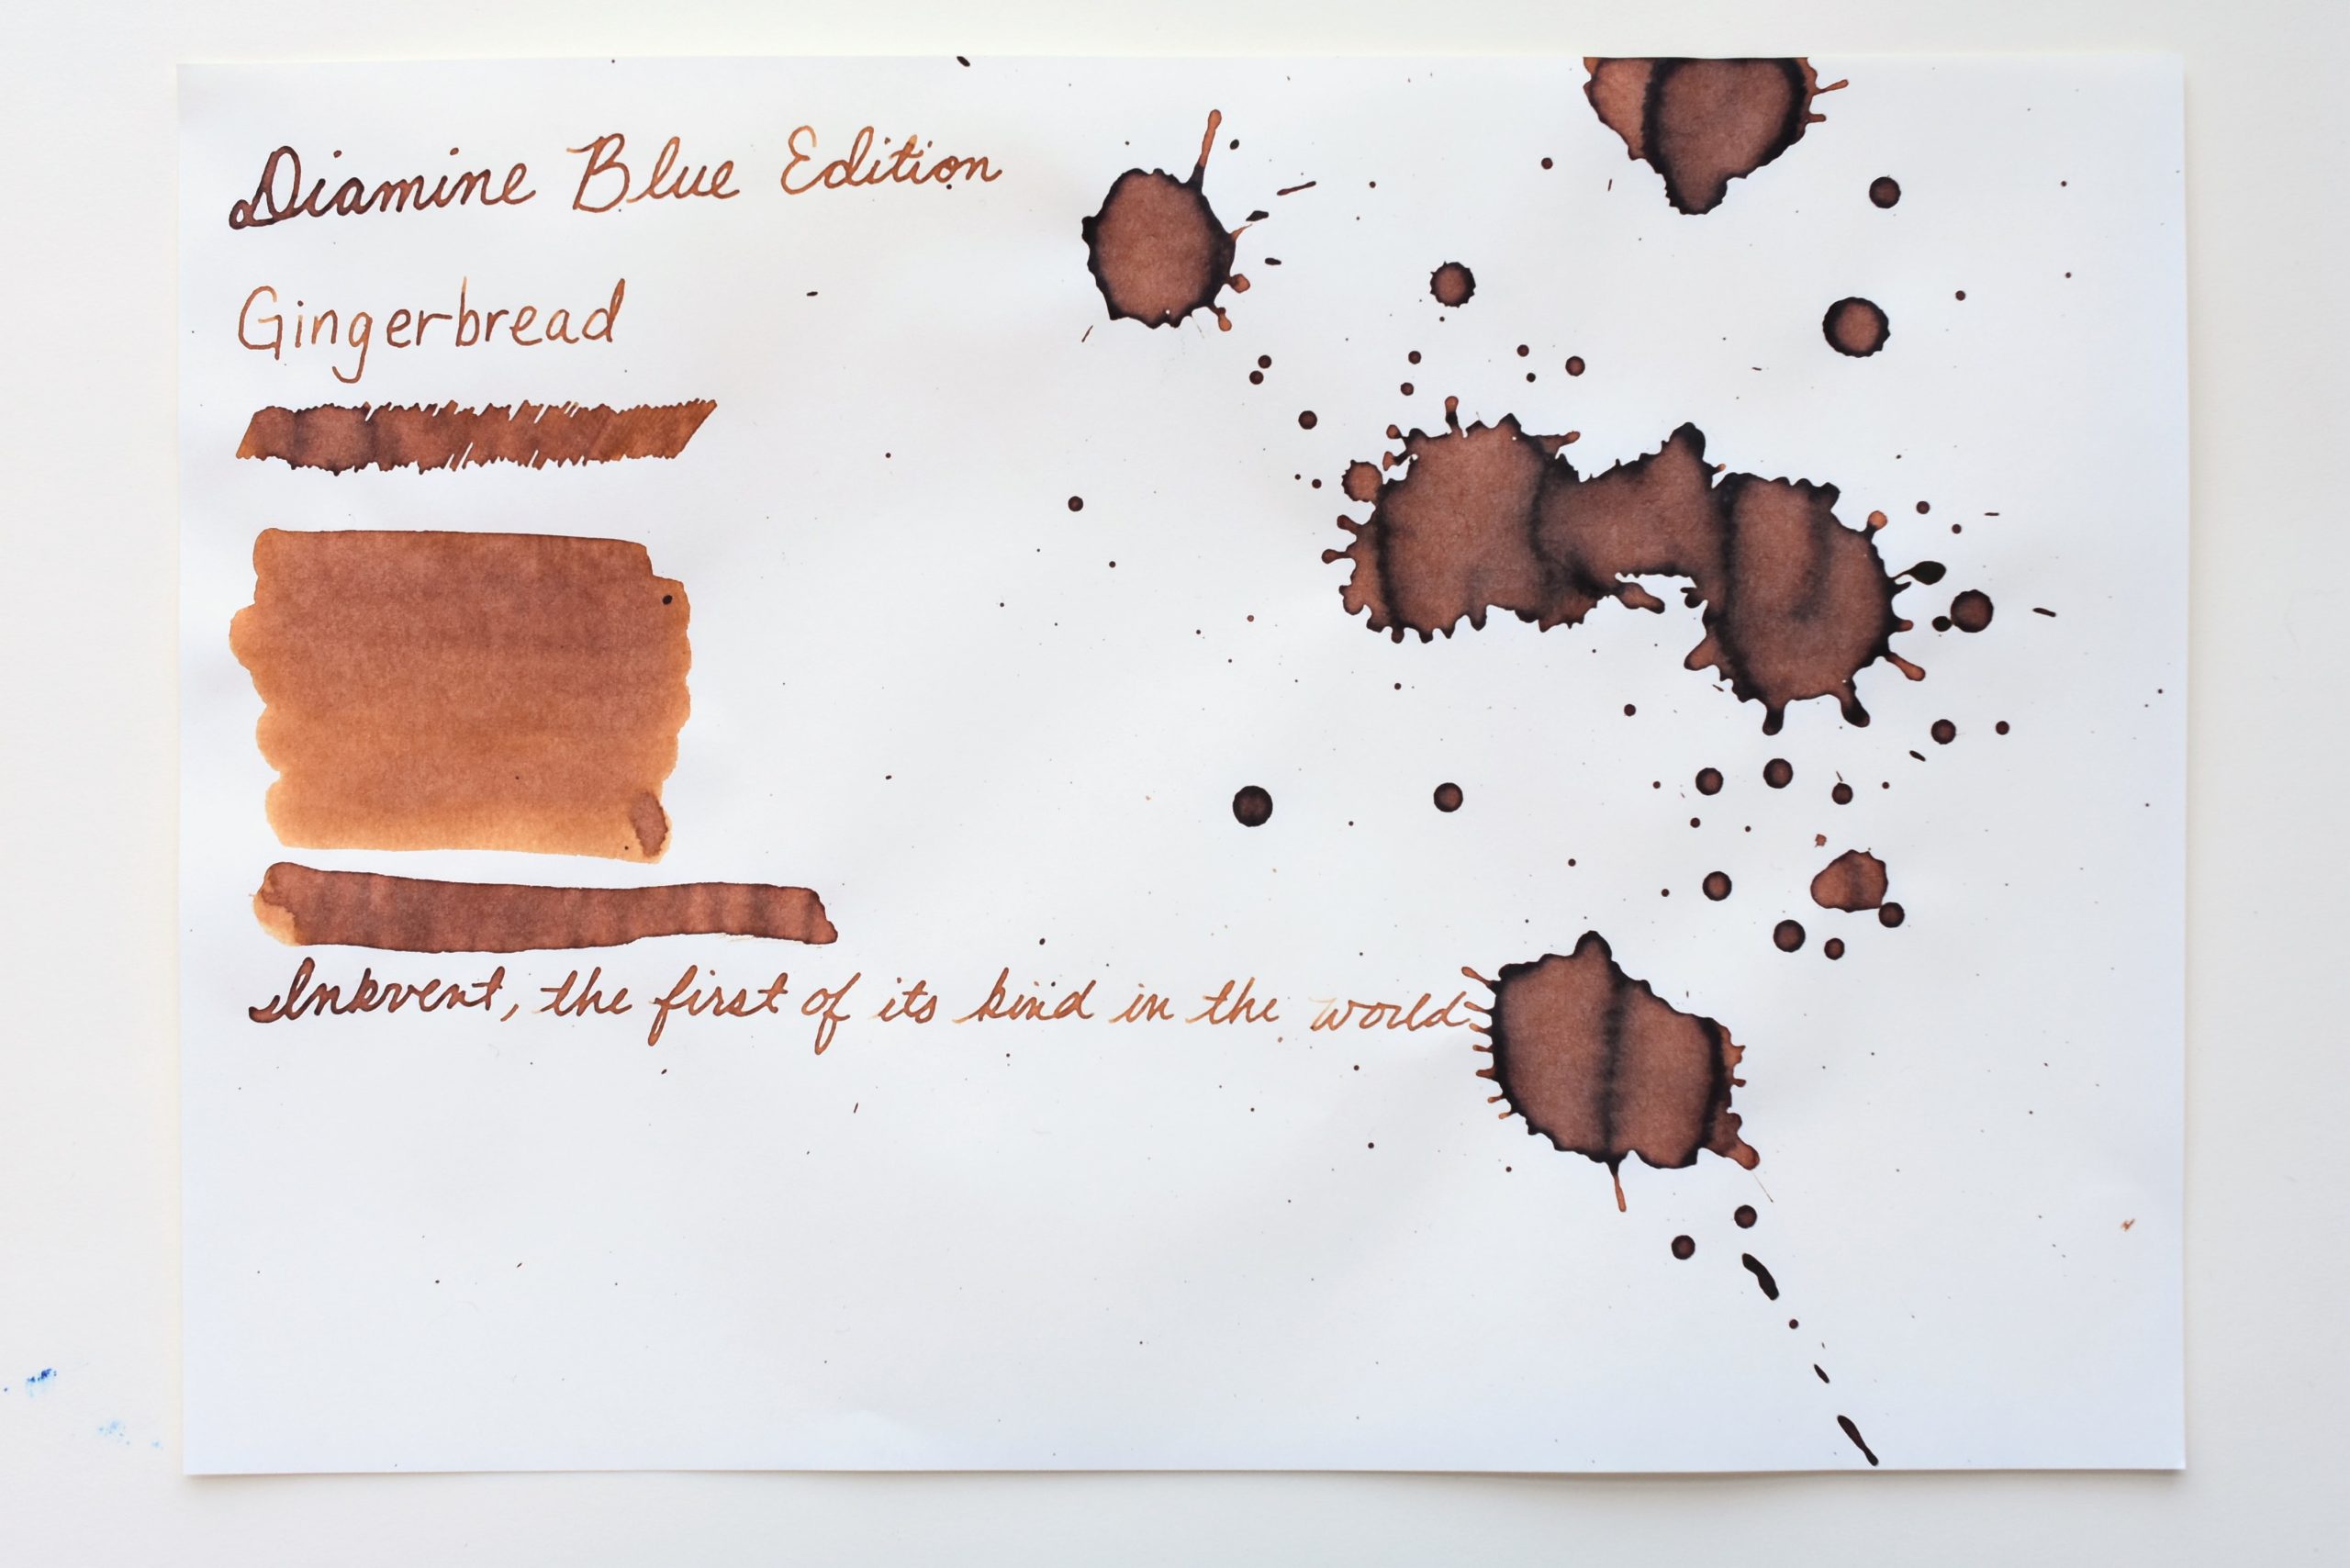 Diamine Blue Edition
Gingerbread
Inkvent, the first of its kind in the world